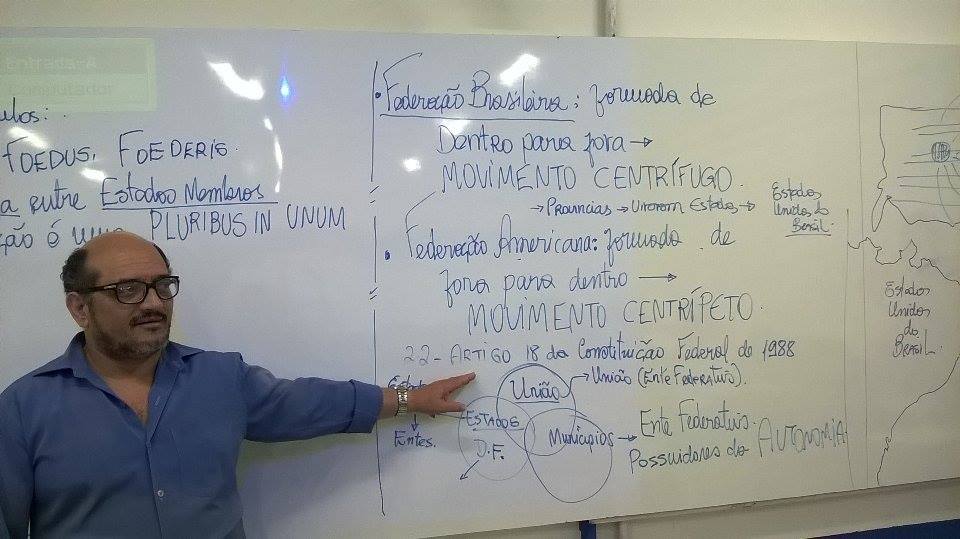 Entrada-A
Computador
FOEDUS, FOEDERIS.
a entre Estados Membros
é uma PLURIBUS IN UNUM
• Federação Brasileira: formada de
Dentro para fora →
MOVIMENTO CENTRÍFUGO.
→ Províncias → Viraram Estados →
Estados
Unidos do
Brasil
• Federação Americana: formada de
fora para dentro →
MOVIMENTO CENTRÍPETO.
2.2 - ARTIGO 18 da Constituição Federal de 1988
União → União (Ente Federativo).
ESTADOS
D.F.
Entes.
Municípios → Ente Federativo.
Possuidores da AUTONOMIA
Estados
Unidos
do
BRASIL.